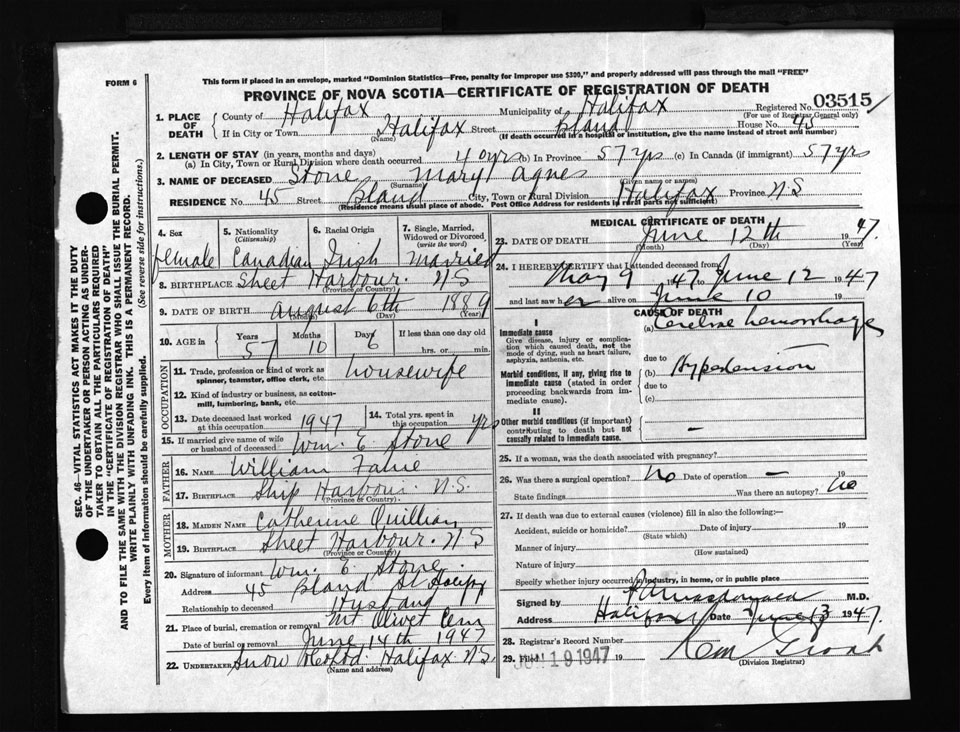 FORM 6
This form if placed in an envelope, marked "Dominion Statistics—Free, penalty for improper use $300," and properly addressed will pass through the mail "FREE"
PROVINCE OF NOVA SCOTIA—CERTIFICATE OF REGISTRATION OF DEATH
Registered No. 03515
(For use of Registrar General only)
1. PLACE OF DEATH { County of Halifax Municipality of Halifax
If in City or Town Halifax Street Bland House No. 45
(Name) (If death occurred in a hospital or institution, give the name instead of street and number)
2. LENGTH OF STAY (in years, months and days)
(a) In City, Town or Rural Division where death occurred 40 yrs (b) In Province 57 yrs (c) In Canada (if immigrant) 57 yrs
3. NAME OF DECEASED Stone Mary Agnes
(Surname) (Given name or names)
RESIDENCE No. 45 Street Bland City, Town or Rural Division Halifax Province N.S
(Residence means usual place of abode. Post Office Address for residents in rural parts not sufficient)
4. Sex
5. Nationality (Citizenship)
6. Racial Origin
7. Single, Married, Widowed or Divorced (write the word)
female Canadian Irish Married
8. BIRTHPLACE Sheet Harbour. N S
(Province or Country)
9. DATE OF BIRTH August 6th 1889
(Month) (Day) (Year)
10. AGE in { Years Months Days If less than one day old
57 10 6 hrs. or min.
OCCUPATION
11. Trade, profession or kind of work as spinner, teamster, office clerk, etc. housewife
12. Kind of industry or business, as cotton-mill, lumbering, bank, etc.
13. Date deceased last worked at this occupation 1947
14. Total yrs. spent in this occupation yrs
15. If married give name of wife or husband of deceased Wm. E Stone
FATHER
16. NAME William
17. BIRTHPLACE Ship Harbour. N.S.
(Province or Country)
MOTHER
18. MAIDEN NAME Catherine Quillian
19. BIRTHPLACE Sheet Harbour. N S
(Province or Country)
20. Signature of informant Wm. E Stone.
Address 45 Bland St Halifx
Relationship to deceased Husband
21. Place of burial, cremation or removal Mt Olivet Cem
Date of burial or removal June 14th 1947
22. Undertaker Snow Halifax N.S.
(Name and address)
MEDICAL CERTIFICATE OF DEATH
23. DATE OF DEATH June 12th 1947.
(Month) (Day) (Year)
24. I HEREBY CERTIFY that I attended deceased from
May 9 1947 to June 12 1947
and last saw her alive on June 10 19
CAUSE OF DEATH
I
Immediate cause
Give disease, injury or complication which caused death, not the mode of dying, such as heart failure, asphyxia, asthenia, etc.
(a) hemorrhage
due to
Morbid conditions, if any, giving rise to immediate cause (stated in order proceeding backwards from immediate cause).
(b) Hypertension
due to
(c)
II
Other morbid conditions (if important) contributing to death but not causally related to immediate cause. –
25. If a woman, was the death associated with pregnancy?
26. Was there a surgical operation? No Date of operation – 19
State findings Was there an autopsy? No
27. If death was due to external causes (violence) fill in also the following:—
Accident, suicide or homicide? Date of injury 19
(State which)
Manner of injury
(How sustained)
Nature of injury
Specify whether injury occurred in industry, in home, or in public place
Signed by M.D.
Address Halifax Date June 13 1947
28. Registrar's Record Number
29. Filed JUN 19 1947 19
(Division Registrar)
SEC. 46—VITAL STATISTICS ACT MAKES IT THE DUTY OF THE UNDERTAKER OR PERSON ACTING AS UNDERTAKER TO OBTAIN ALL THE PARTICULARS REQUIRED IN THE "CERTIFICATE OF REGISTRATION OF DEATH" AND TO FILE THE SAME WITH THE DIVISION REGISTRAR WHO SHALL ISSUE THE BURIAL PERMIT.
WRITE PLAINLY WITH UNFADING INK. THIS IS A PERMANENT RECORD.
Every item of information should be carefully supplied. (See reverse side for instructions.)